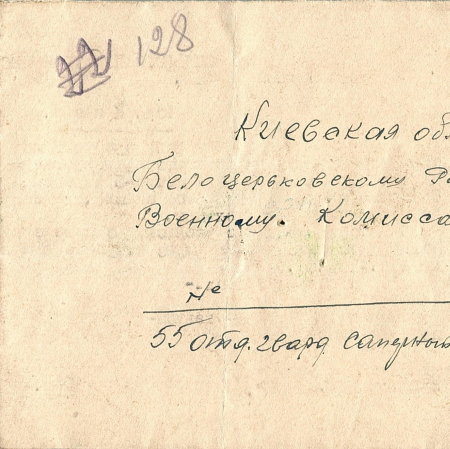 128
Киевская обл
Белоцерьковскому Ра
Военному. Комисса
№
55 отд. гвард. Саперный